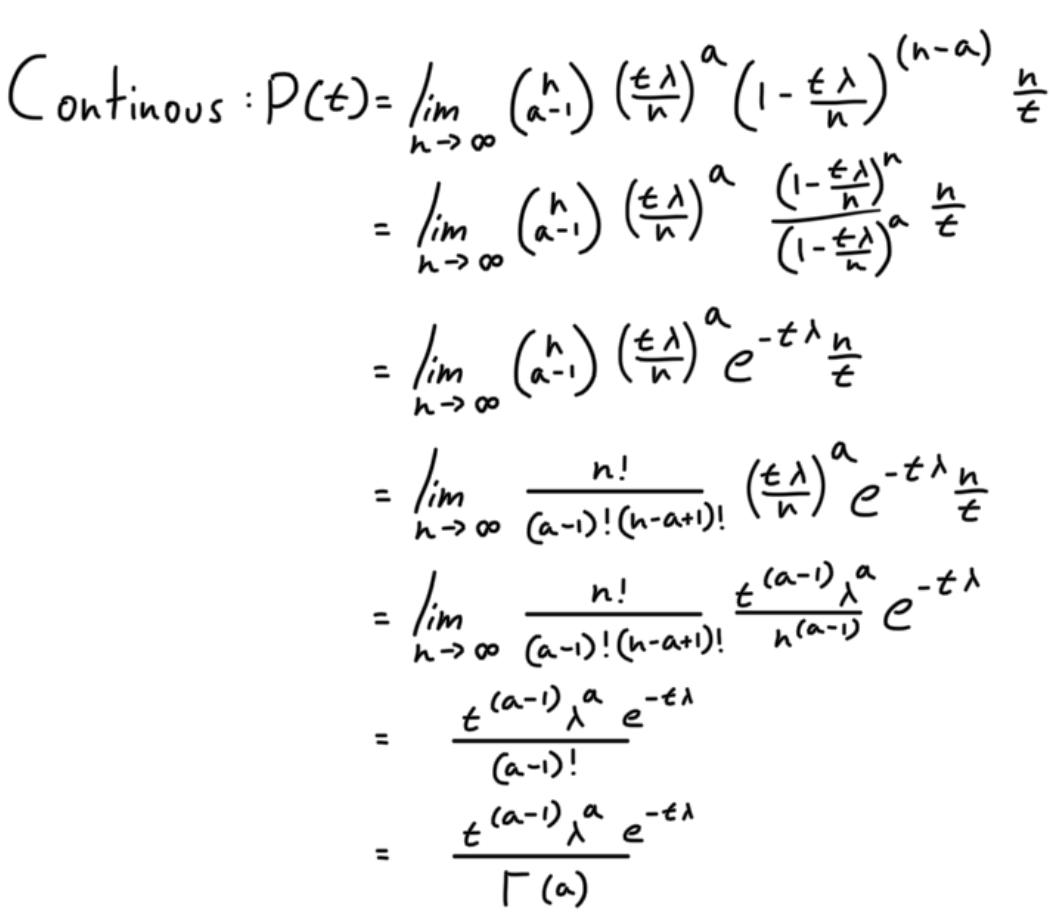 Continous : P(t) = lim_{n→∞} \binom{n}{a-1} (\frac{tλ}{n})^a (1 - \frac{tλ}{n})^{(n-a)} \frac{n}{t}
= lim_{n→∞} \binom{n}{a-1} (\frac{tλ}{n})^a \frac{(1 - \frac{tλ}{n})^n}{(1 - \frac{tλ}{n})^a} \frac{n}{t}
= lim_{n→∞} \binom{n}{a-1} (\frac{tλ}{n})^a e^{-tλ} \frac{n}{t}
= lim_{n→∞} \frac{n!}{(a-1)!(n-a+1)!} (\frac{tλ}{n})^a e^{-tλ} \frac{n}{t}
= lim_{n→∞} \frac{n!}{(a-1)!(n-a+1)!} \frac{t^{(a-1)} λ^a}{n^{(a-1)}} e^{-tλ}
= \frac{t^{(a-1)} λ^a e^{-tλ}}{(a-1)!}
= \frac{t^{(a-1)} λ^a e^{-tλ}}{Γ(a)}